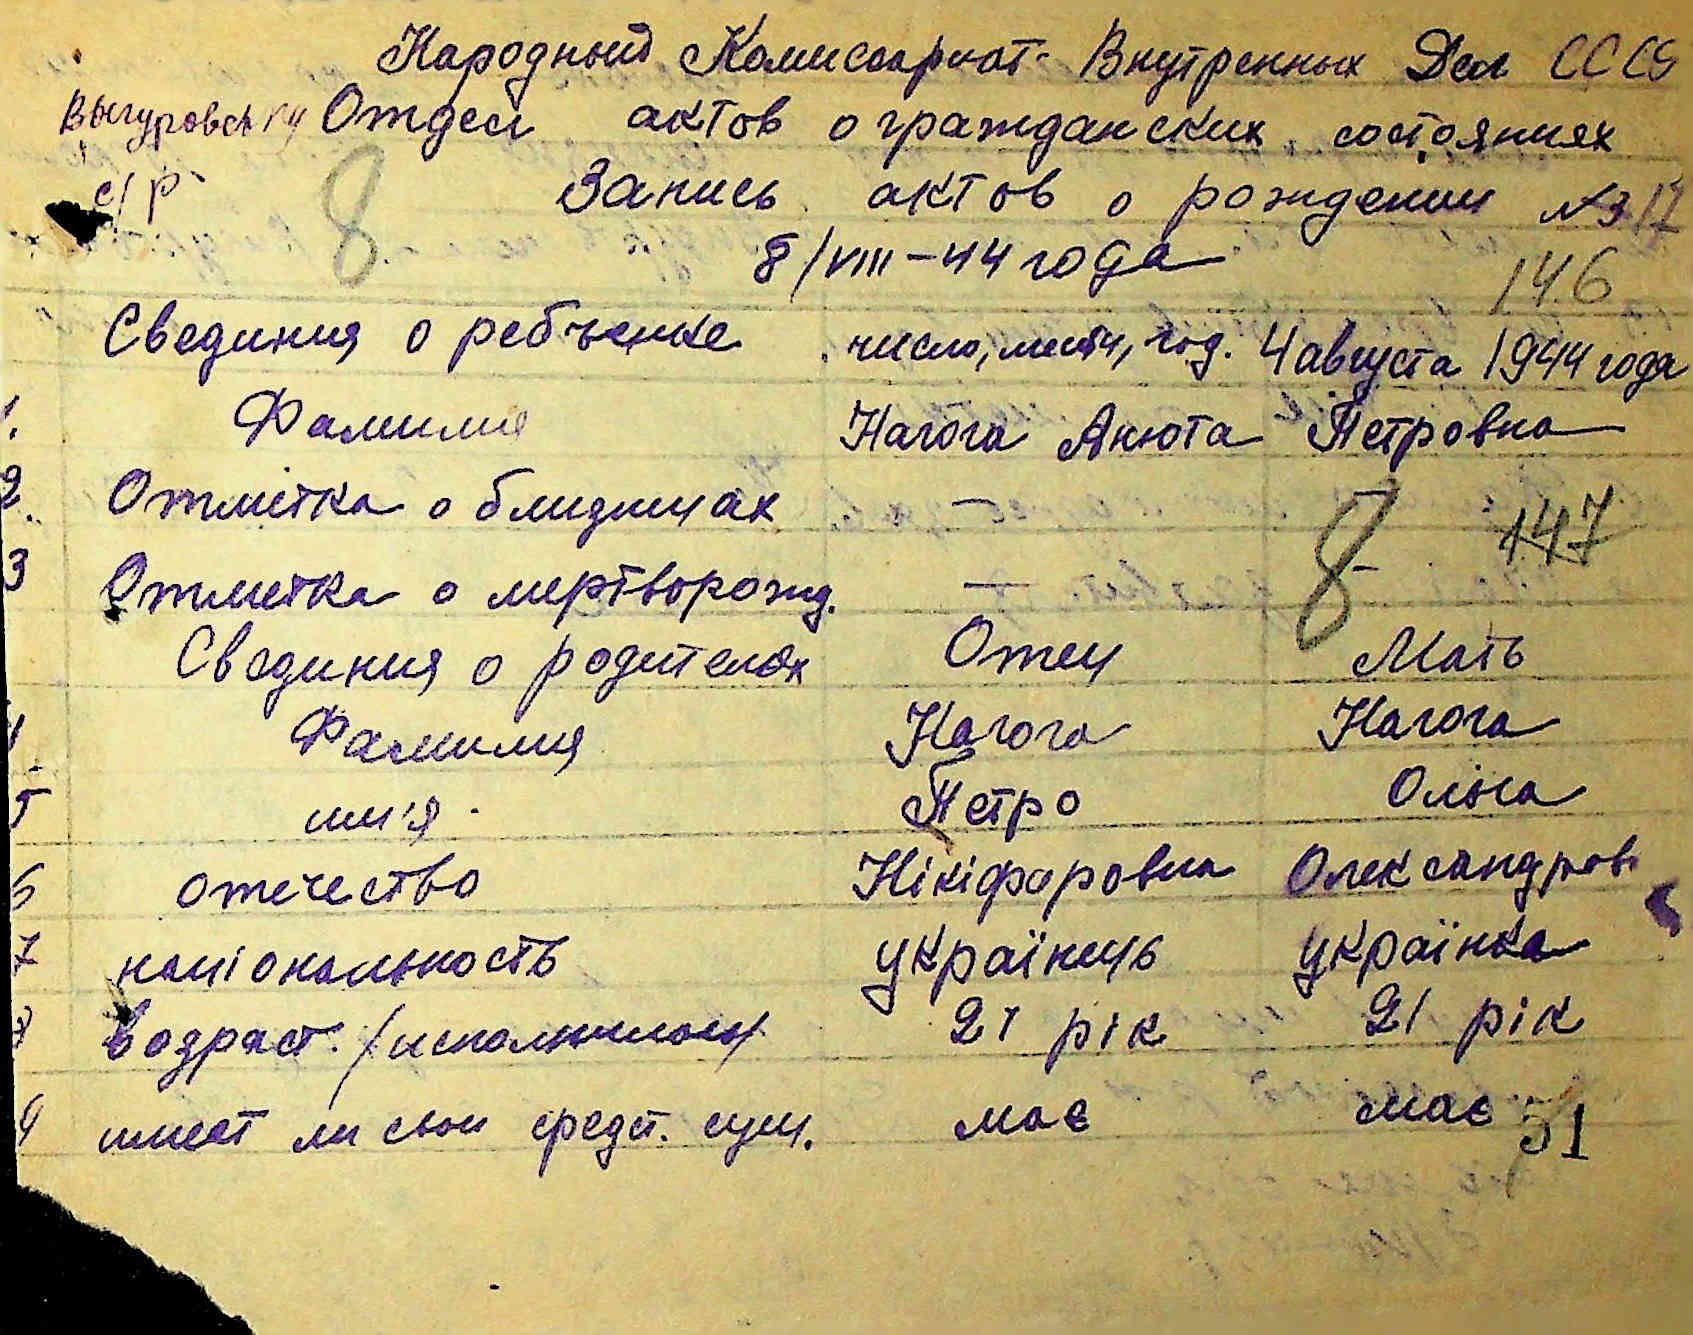 Народный Комиссариат Внутренных Дел СССР
Выгуровський Отдел актов о гражданских состояниях
с/р 8 Запись актов о рождении №
8/VIII-44 года
146
Свединия о ребъенке число, месяц, год. 4 августа 1944 года
1. Фамилия Нагога Анюта Петровна
2. Отмітка о близницах —
8 147
3 Отметка о мертворожд. —
Свединия о родителях Отец Мать
4 Фамилия Нагога Нагога
5 им'я Петро Ольга
6 отечество Нікіфоровна Олександров.
7 національность українець українка
8 возраст. /исполнилось/ 21 рік 21 рік
9 имеет ли свои средст. сущ. має має
51